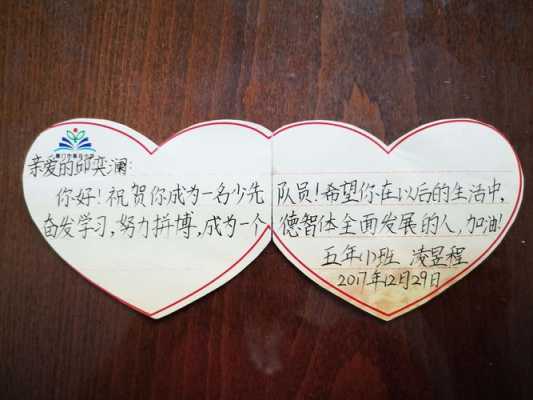 亲爱的邱奕澜:
你好!祝贺你成为一名少先队员!希望你在以后的生活中,
奋发学习,努力拼博,成为一个德智体全面发展的人,加油!
五年(1)班 凌昱程
2017年12月29日